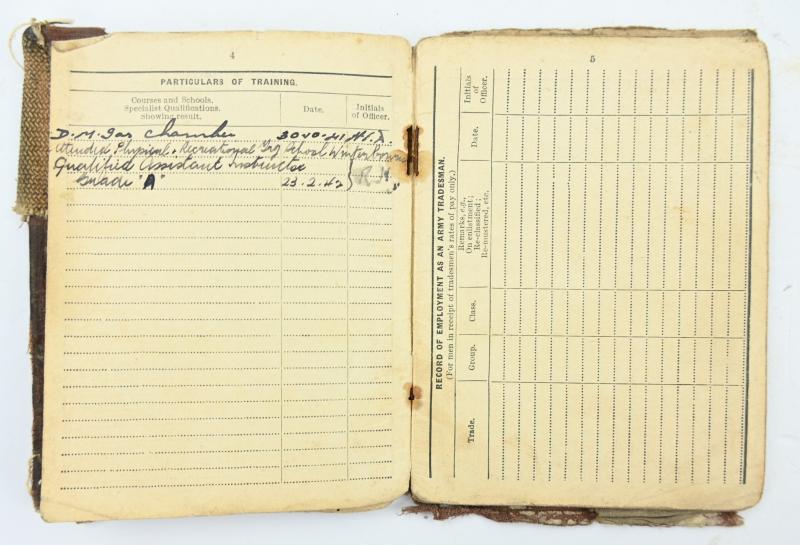 4
PARTICULARS OF TRAINING.
Courses and Schools, Specialist Qualifications, showing result.
Date.
Initials of Officer.
D.M. Gas Chamber 30-10-41
Attended Physical & Recreational Trg School
Qualified Assistant Instructor
Grade "A" 23.2.42
5
RECORD OF EMPLOYMENT AS AN ARMY TRADESMAN.
(For men in receipt of tradesmen's rates of pay only.)
Trade.
Group.
Class.
Remarks, e.g., On enlistment; Re-classified; Re-mustered, etc.
Date.
Initials of Officer.